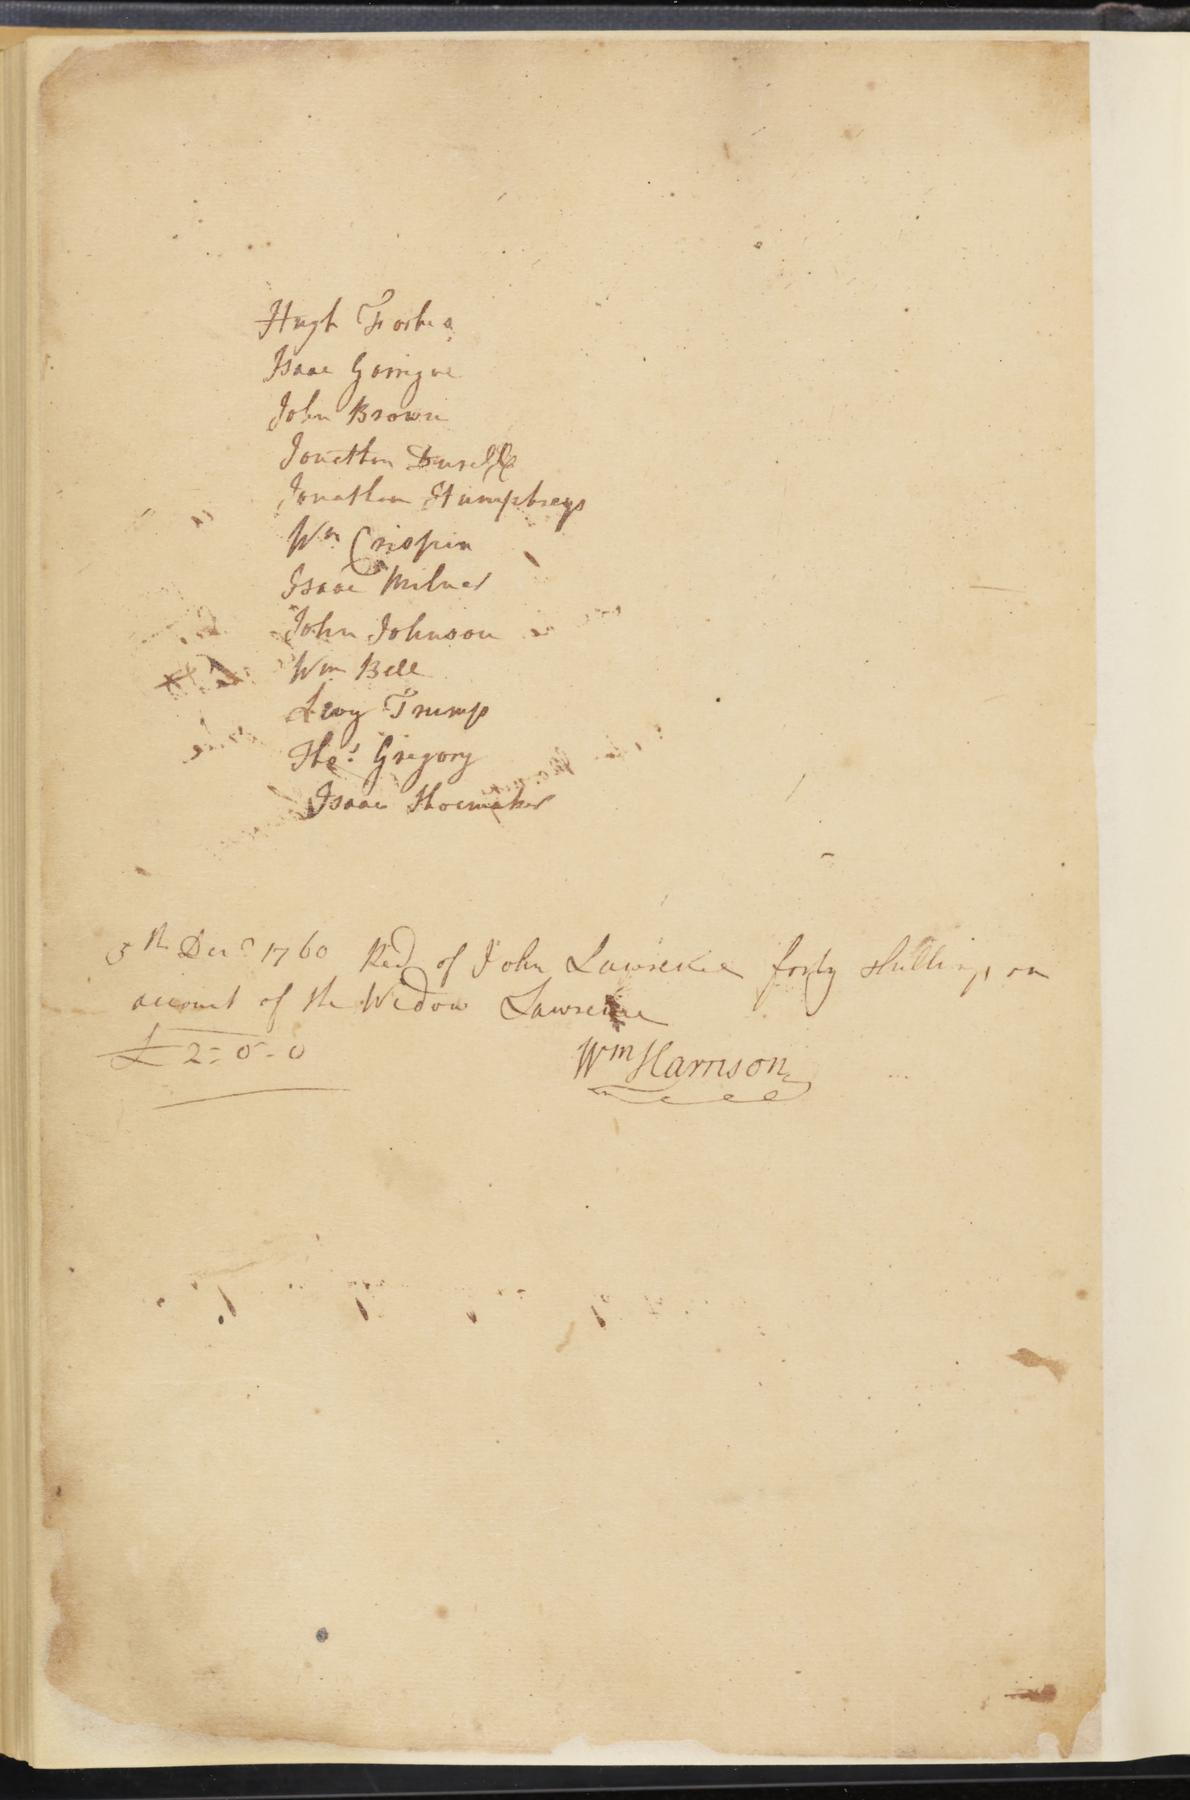 Hugh Forbes
Isaac Garrigue
John Brown
Jonathan Durell
Jonathan Humphreys
Wm Crispin
Isaac Milner
John Johnson
Wm Bell
Levy Trump
Tho.s Gregory
Isaac Shoemaker
5th Decr 1760 Recd of John Lawrence forty shillings on
account of the Widow Lawrence
£ 2=0-0
Wm Harrison